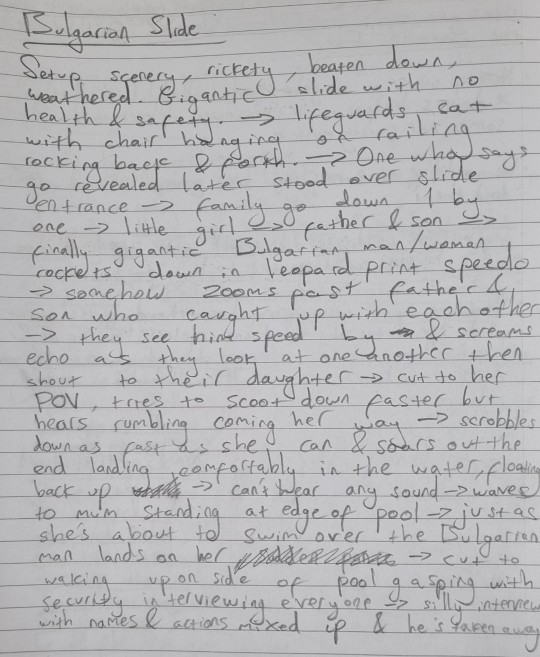 Bulgarian Slide
Setup scenery, rickety, beaten down,
weathered. Gigantic slide with no
health & safety. → lifeguards eat
with chair hanging on railing
rocking back & forth. → One who says
go revealed later stood over slide
entrance → family go down 1 by
one → little girl → father & son →
finally gigantic Bulgarian man/woman
rockets down in leopard print speedo
→ somehow zooms past father &
son who caught up with each other
→ they see him speed by & screams
echo as they look at one another then
shout to their daughter → cut to her
POV, tries to scoot down faster but
hears rumbling coming her way → scrobbles
down as fast as she can & soars out the
end landing comfortably in the water, floating
back up → can't hear any sound → waves
to mum standing at edge of pool → just as
she's about to swim over the Bulgarian
man lands on her → cut to
waking up on side of pool gasping with
security interviewing everyone → silly interview
with names & actions mixed up & he's taken away